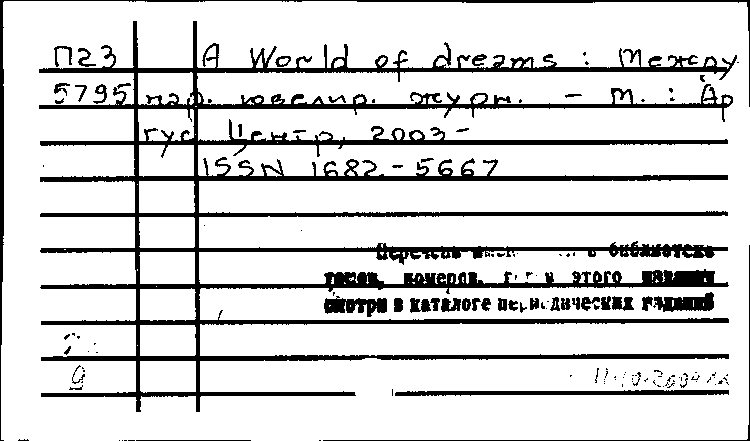 П23 A World of dreams : Между
5795 нар. ювелир. журн. - М. : Ар
гус Центр, 2003-
ISSN 1682-5667
Перечень в библиотеке
томов, номеров, этого издания
смотри в каталоге периодических изданий
9 11.10.2004